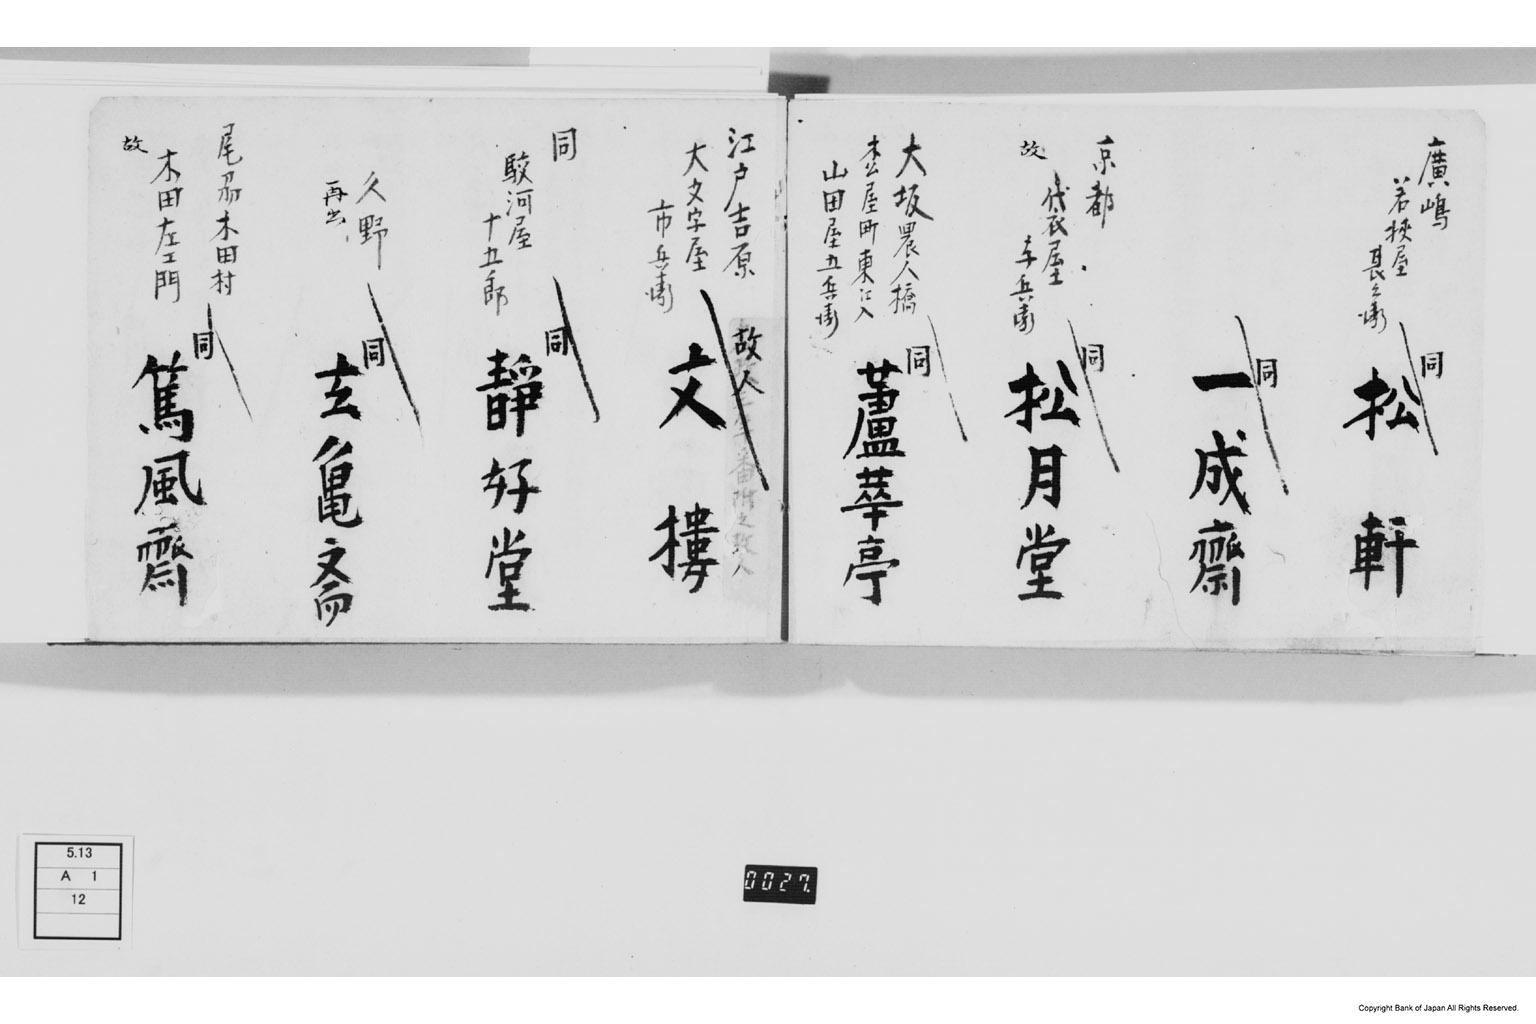 廣嶋
若狭屋
甚兵衛
同
松軒
同
一成齋
京都
故
袋屋
幸兵衛
同
松月堂
大坂農人橋
松屋町東江入
山田屋五兵衛
同
蘆華亭
江戸吉原
大文字屋
市兵衛
故人
文樓
同
駿河屋
十五郎
同
靜好堂
久野
再出
同
玄亀斎
尾刕木田村
故
木田左エ門
同
篤風齋
5.13
A 1
12
0027.
Copyright Bank of Japan All Rights Reserved.